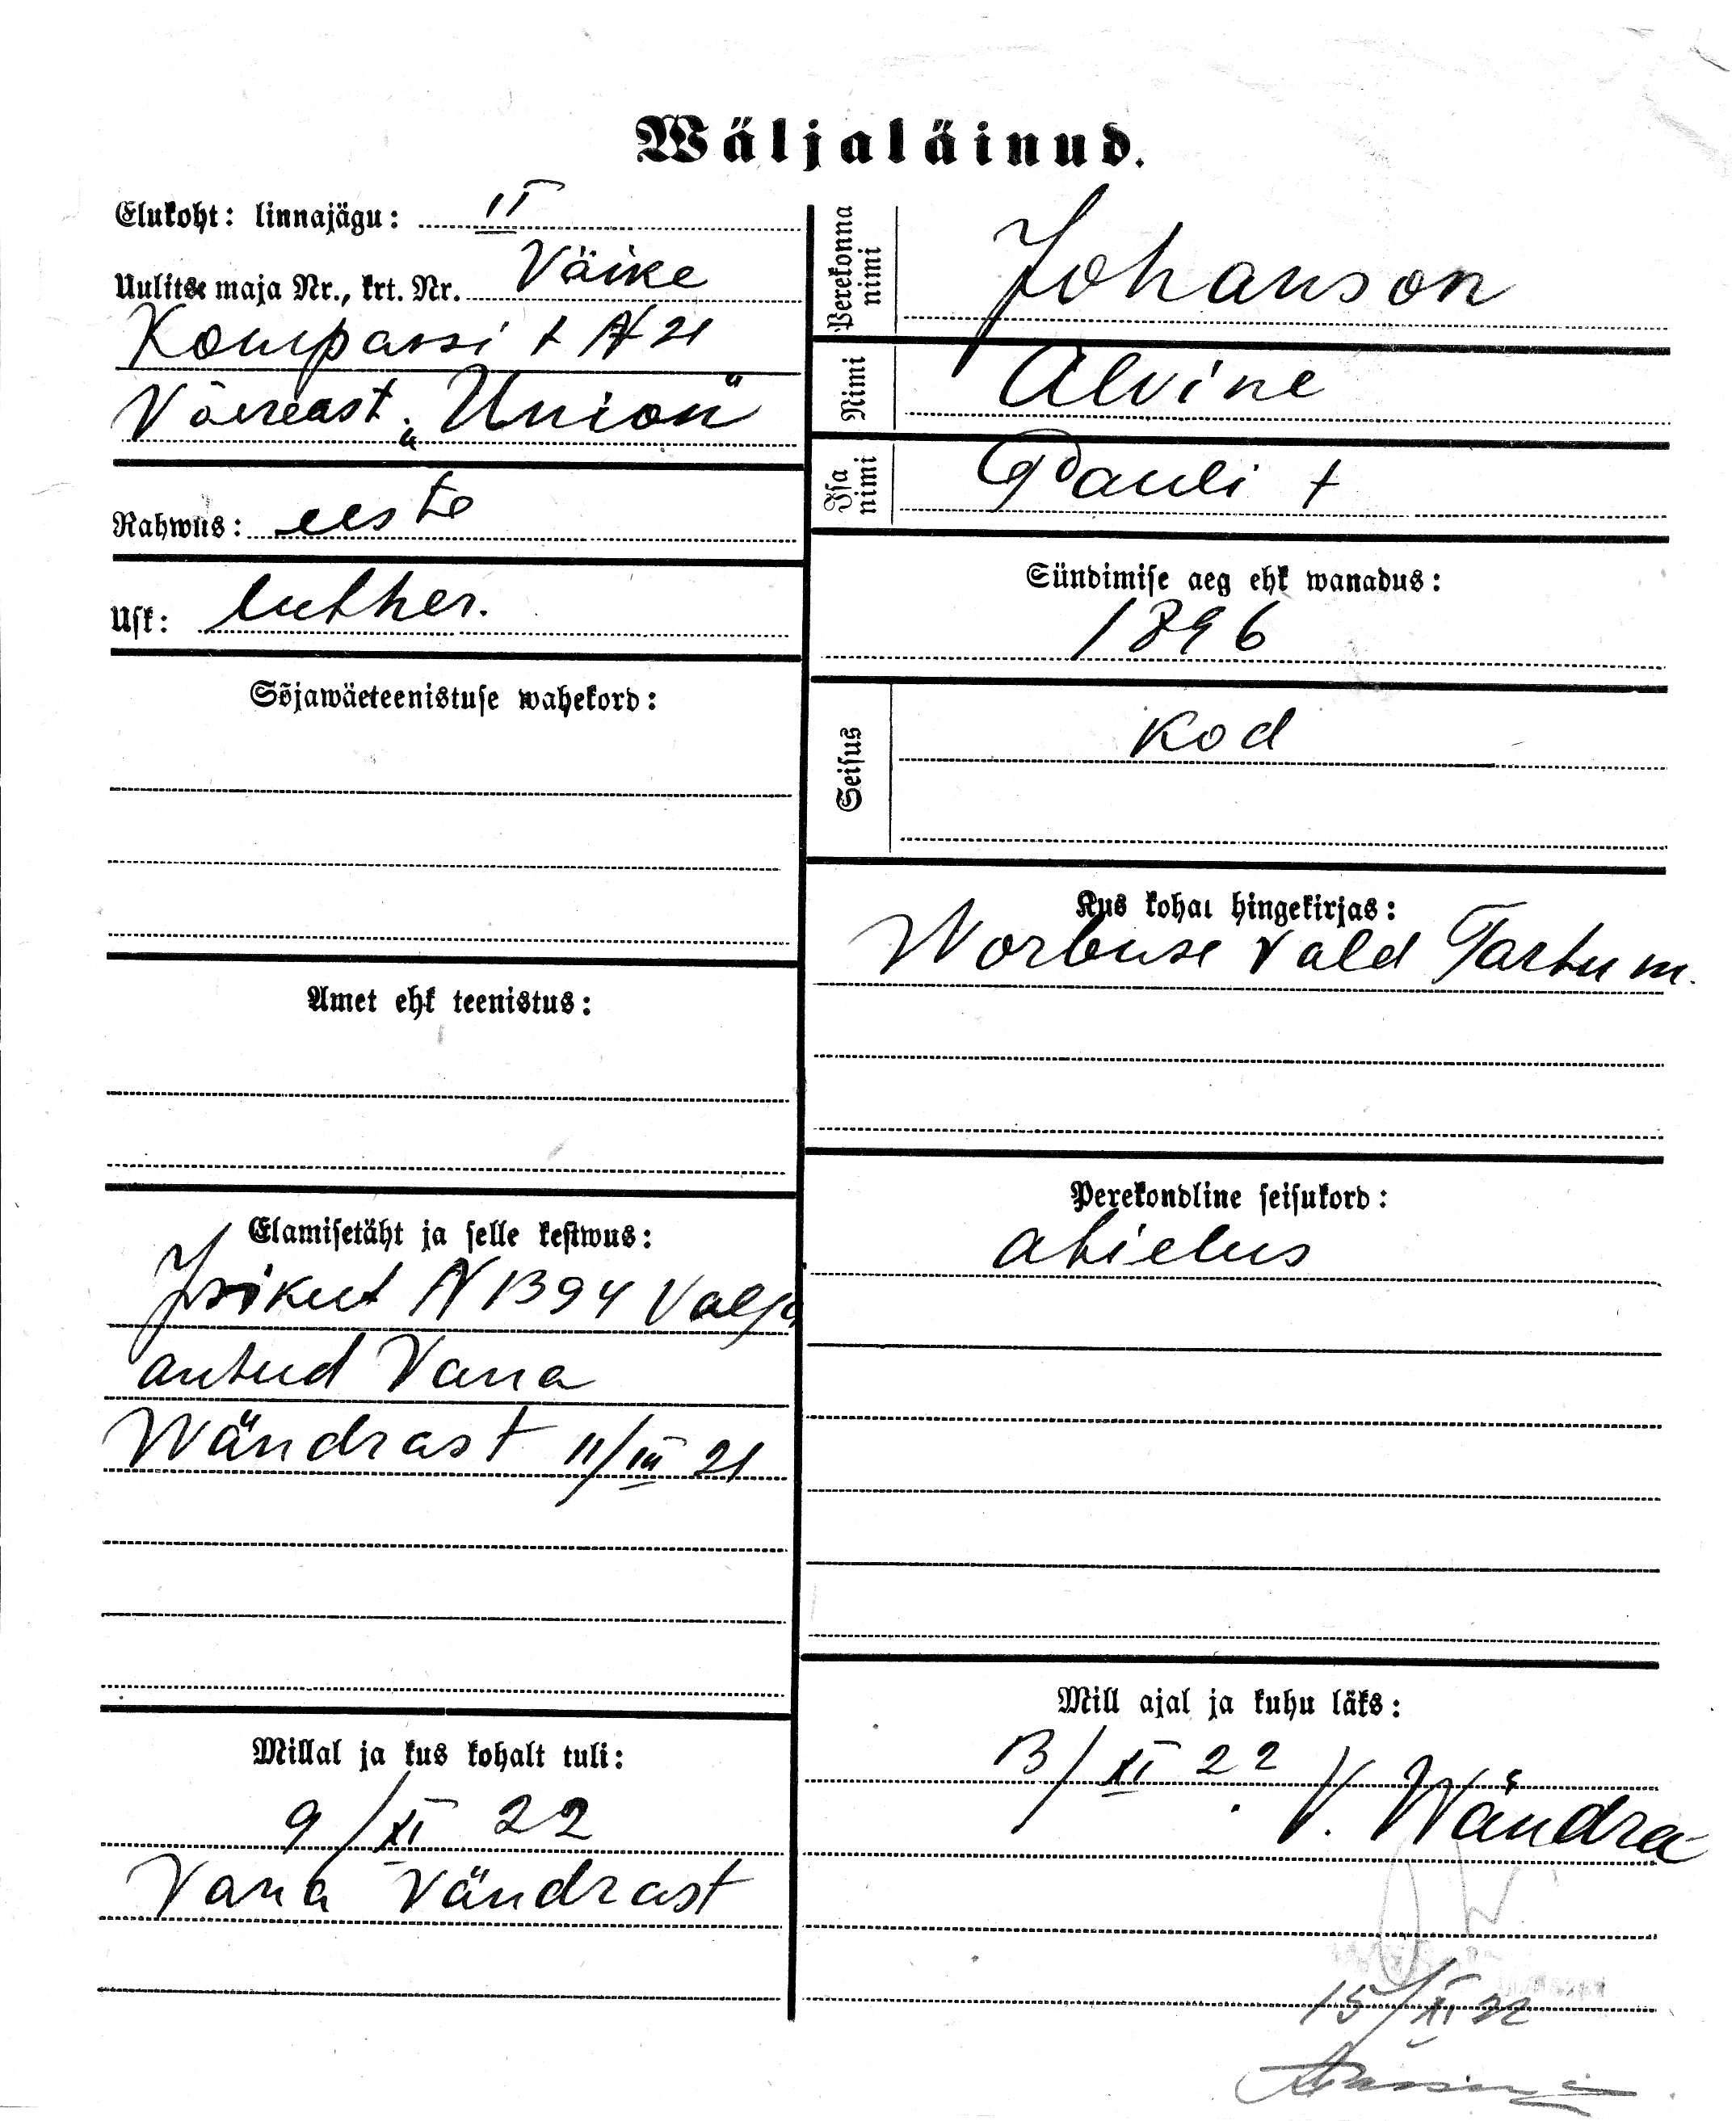 Wäljaläinud.
Elukoht: linnajägu: II
Uulitse maja Nr., krt. Nr. Väike
Kompassi t № 21
Võereast. „Union"
Rahwus: eesti
Usk: luther.
Sõjawäeteenistuse wahekord:
Amet ehk teenistus:
Elamisetäht ja selle kestwus:
Isikut N 1394 Valja
antud Vana
Wändrast 11/III 21
Millal ja kus kohalt tuli:
9/XI 22
Vana Vändrast
Perekonna nimi Johanson
Nimi Alvine
Isa nimi Pauli t
Sündimise aeg ehk wanadus:
1896
Seisus kod
Kus kohal hingekirjas:
Worbuse vald Tartu m.
Perekondline seisukord:
abielus
Mill ajal ja kuhu läks:
13/XI 22 V. Wändra
15/XI 22